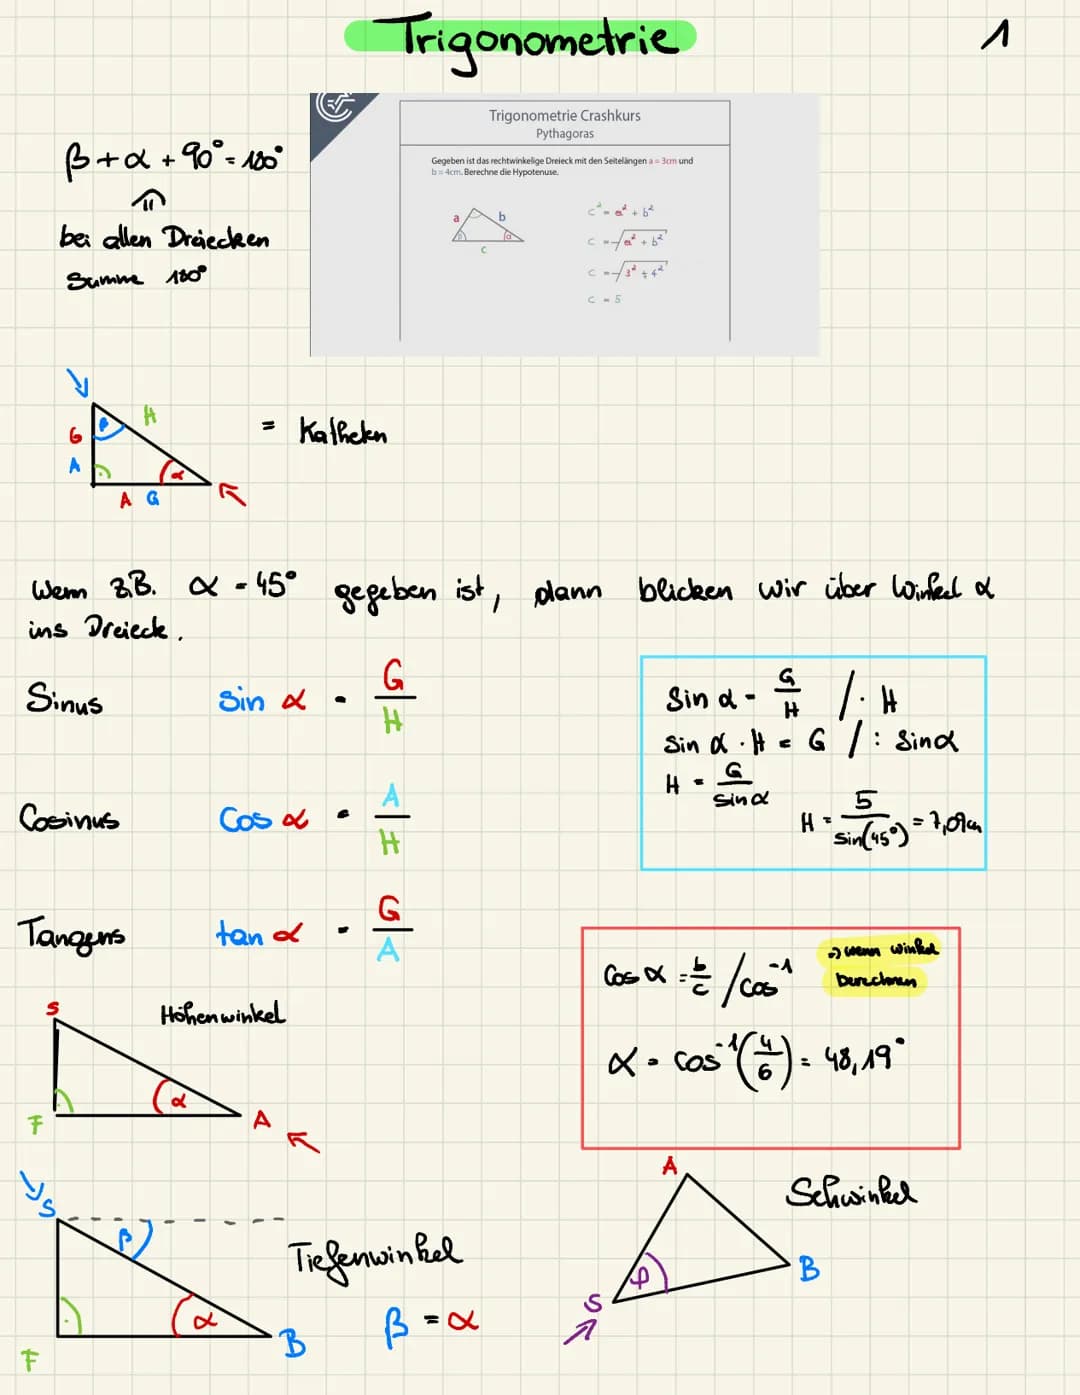 Trigonometrie
1
β + α + 90° = 180°
⇑
bei allen Dreiecken
Summe 180°
Trigonometrie Crashkurs
Pythagoras
Gegeben ist das rechtwinkelige Dreieck mit den Seitelängen a = 3cm und
b = 4cm. Berechne die Hypotenuse.
a
b
β
α
c
c² = a² + b²
c = √a² + b²
c = √3² + 4²
c = 5
G
A
β
H
α
A G
= Katheten
Wenn z.B. α = 45° gegeben ist, dann blicken wir über Winkel α
ins Dreieck.
Sinus sin α = G/H
Cosinus Cos α = A/H
Tangens tan α = G/A
Sin α = G/H / · H
Sin α · H = G / : Sin α
H = G/sin α
H = 5/sin(45°) = 7,07cm
Cos α = b/c / cos⁻¹
=> wenn Winkel
berechnen
α = cos⁻¹(4/6) = 48,19°
Höhenwinkel
S
F
α
A
Tiefenwinkel
S
β
α
F
B
β = α
Sehwinkel
A
B
S
φ